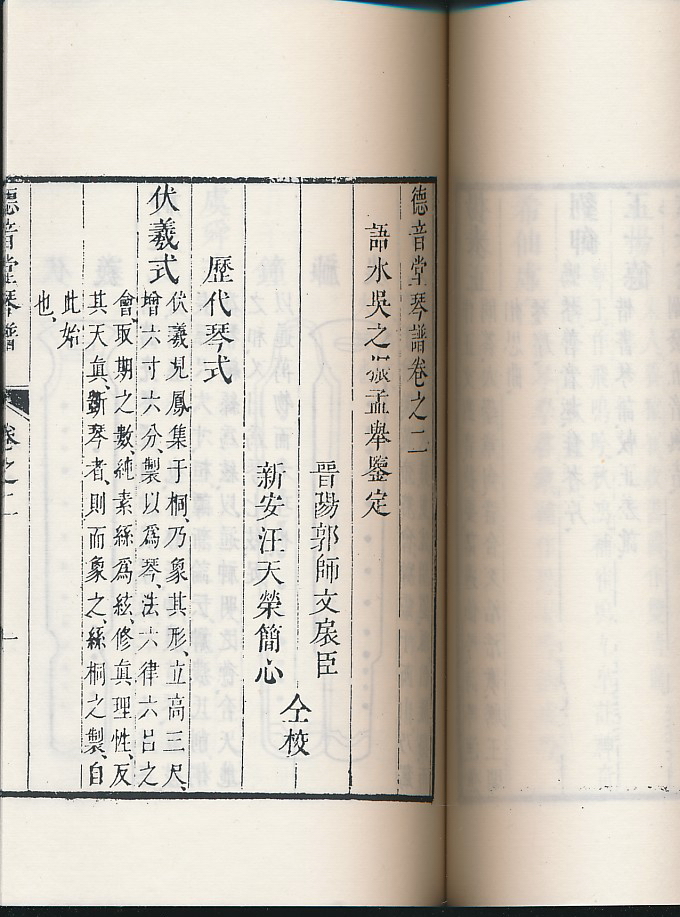 德音堂琴譜卷之二
語水吳之振孟舉鑒定
晉陽郭師文扆臣
新安汪天榮簡心
仝校
歷代琴式
伏羲式
伏羲見鳳集于桐、乃象其形、立高三尺、
增六寸六分、製以爲琴、法六律六呂之
會、取期之數、純素絲爲絃、修眞理性、反
其天眞、斵琴者、則而象之、絲桐之製、自
此始
也、
德音堂琴譜
卷之二
一